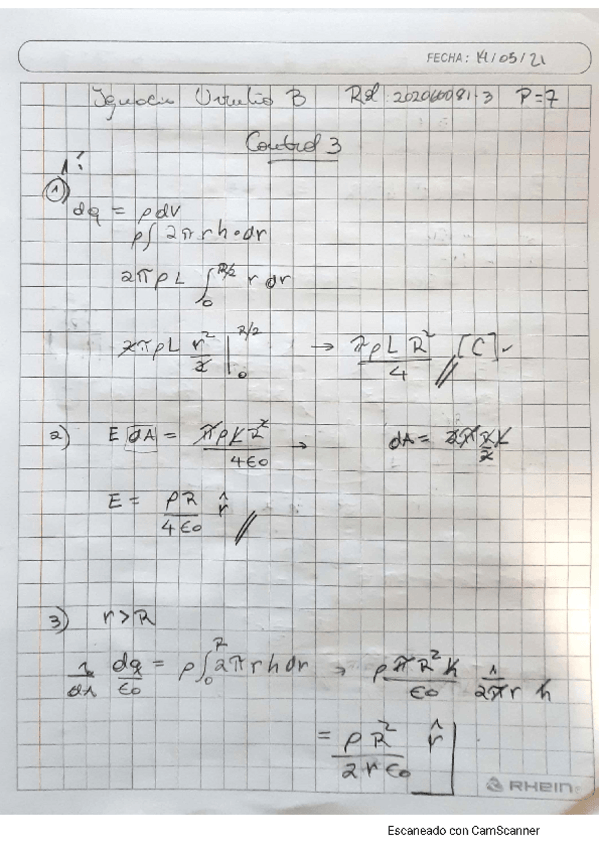 FECHA: 14/05/21
B Rol: 202060081-3 P=7
Control 3
1:
① dq = ρdv
ρ∫ 2πrh·dr
2πρL ∫₀^{R/2} r dr
2πρL r²/2 |₀^{R/2} → πρLR²/4 [C]
2) E dA = πρLR²/4ε0 → dA = 2πR/2 L
E = ρR/4ε0 r̂
3) r>R
1/dA dq/ε0 = ρ∫₀^R 2πrhdr → ρπR²h/ε0 1/2πrh
= ρR²/2rε0 r̂
RHEIN
Escaneado con CamScanner